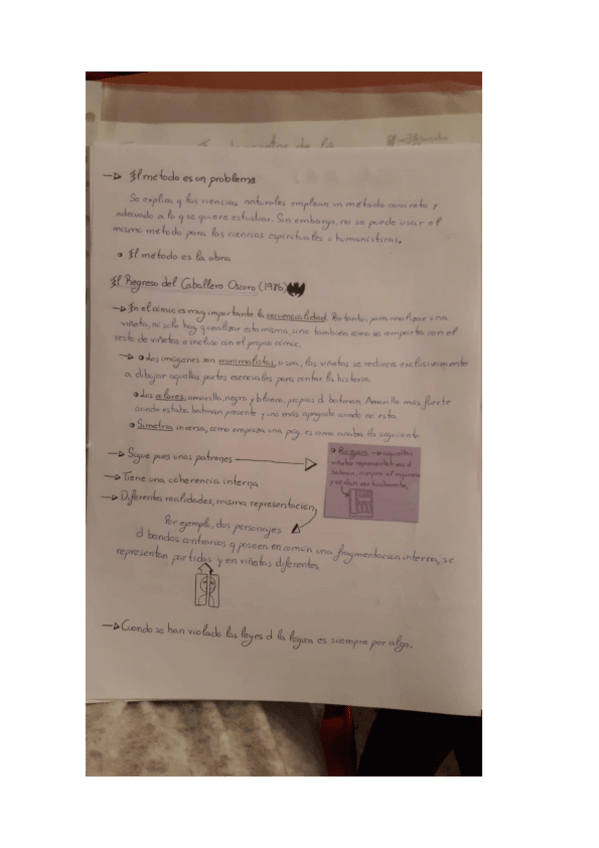 Fundamentos de la
→ El método es un problema
Se explica q las ciencias naturales emplean un método concreto y
adecuado a lo q se quiere estudiar. Sin embargo, no se puede usar el
mismo método para las ciencias espirituales o humanísticas.
• El método es la obra
El Regreso del Caballero Oscuro (1986)
→ En el cómic es muy importante la secuencialidad. Por tanto, para analizar una
viñeta, no solo hay q analizar esta misma, sino también como se comporta con el
resto de viñetas e incluso con el propio cómic.
→ • Las imágenes son minimalistas, o sea, las viñetas se reducen exclusivamente
a dibujar aquellas partes esenciales para contar la historia.
• Los colores, amarillo, negro y blanco, propios d batman. Amarillo más fuerte
cuando estaba batman presente y uno más apagado cuando no esta
• Simetría inversa, como empieza una pág. es como acaba la siguiente
→ Sigue pues unos patrones →
• Rasgos → pequeñas
viñetas representativas d
batman,
→ Tiene una coherencia interna
→ Diferentes realidades, misma representación
Por ejemplo, dos personajes
d bandos contrarios q poseen en común una fragmentación interna, se
representan partidos y en viñetas diferentes
→ Cuando se han violado las leyes d la lógica es siempre por algo.